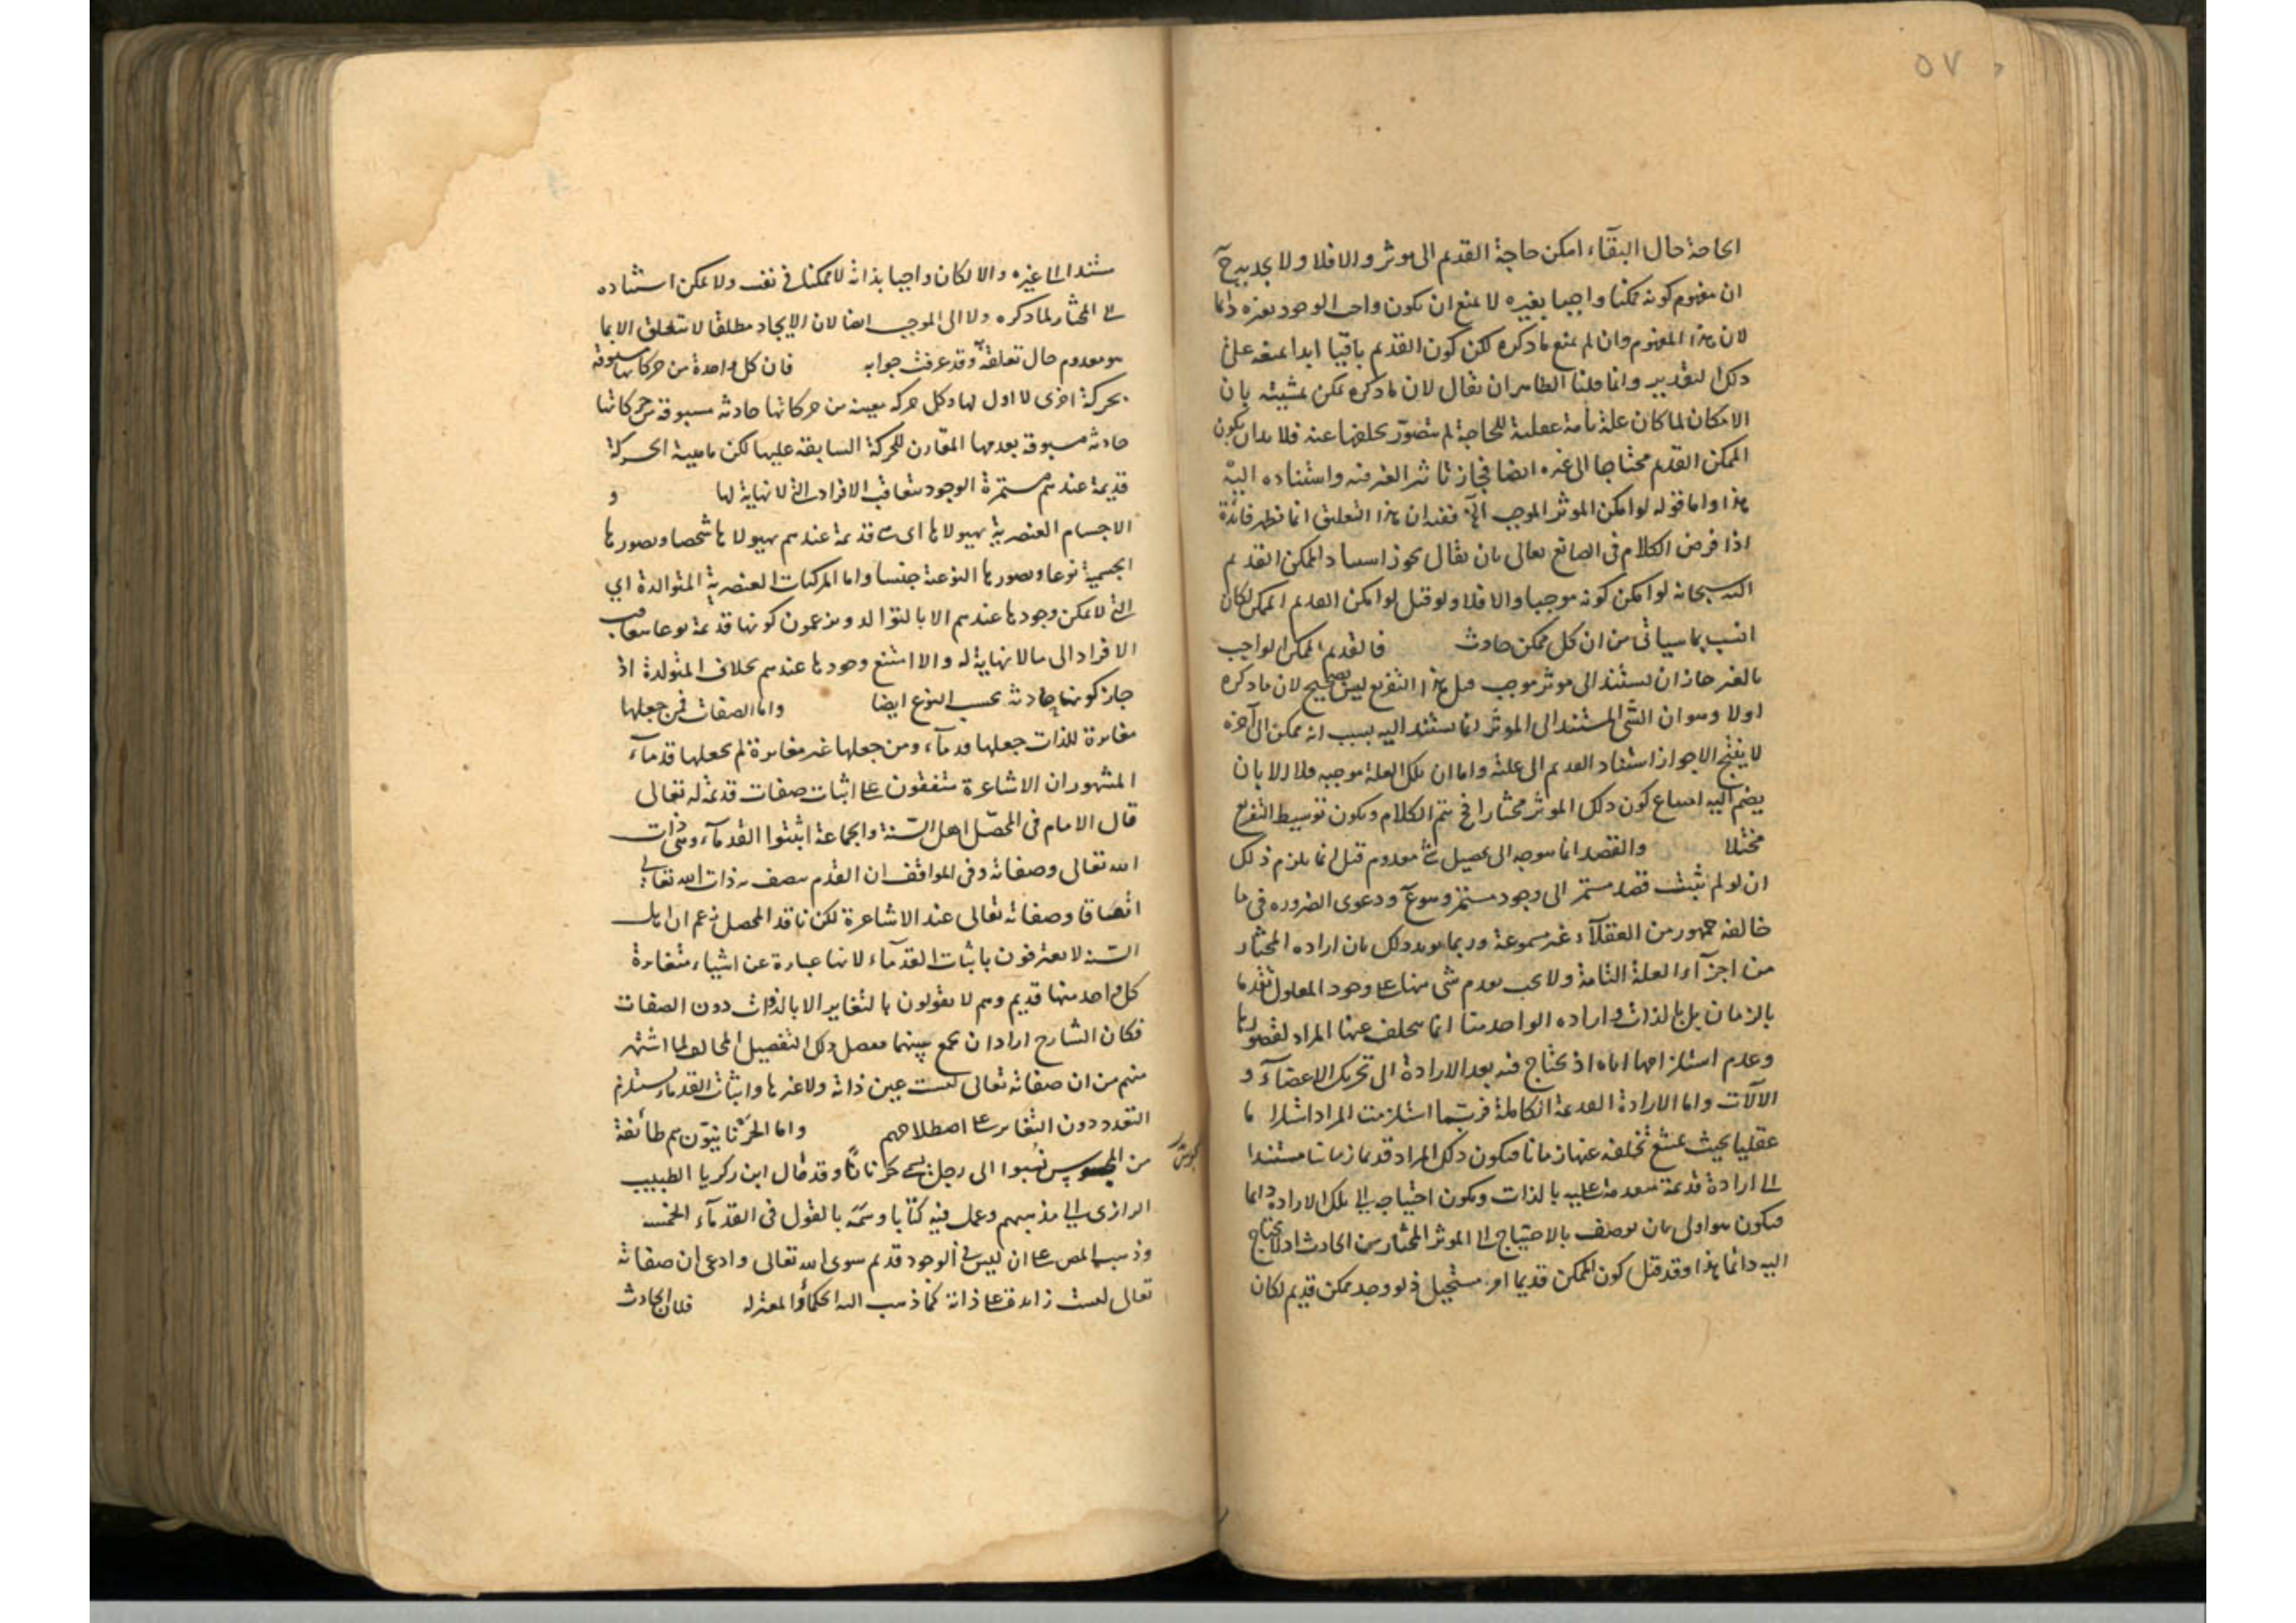 ٥٧
الحاجة حال البقآء امكن حاجة القديم الى موثر والا فلا ولا
ان مفهوم كونه ممكنا واجبا بغيره لا يمنع ان يكون واجب الوجود بغيره دائما
لان هذا المفهوم وان لم يمنع ما ذكره لكن كون القديم باقيا ابدا يمنعه على
ذلك التقدير وانما قلنا الظاهر ان يقال لان ما ذكره يمكن تمشيته بان
الامكان لما كان علة تامة عقلية للحاجة لم يتصور تخلفها عنه فلا بد ان يكون
الممكن القديم محتاجا الى غيره ايضا فجاز تاثير الغير فيه واستناده اليه
هذا واما قوله لو امكن الموثر الموجب الخ ففيه ان هذا التعليق انما تظهر فائدة
اذا فرض الكلام فى الصانع تعالى بان يقال يجوز استناد الممكن القديم
اليه سبحانه لو امكن كونه موجبا والا فلا ولو قيل لو امكن القديم الممكن لكان
انسب بما سياتى من ان كل ممكن حادث فالقديم الممكن الواجب
بالغير جاز ان يستند الى موثر موجب قيل هذا التفريع ليس بصحيح لان ما ذكره
اولا وهو ان الشئ المستند الى الموثر انما يستند اليه بسبب انه ممكن الى آخره
لا ينتج الا جواز استناد القديم الى علته واما ان تلك العلة موجبة فلا الا بان
يضم اليه امتناع كون ذلك الموثر مختارا فح يتم الكلام ويكون توسيط التفريع
مختلا والقصد انما يتوجه الى تحصيل شئ معدوم قيل انما يلزم ذلك
ان لو لم يثبت قصد مستمر الى وجود مستمر وهو ع ودعوى الضروره فى ما
خالفه جمهور من العقلآء غير مسموعة وربما يويد ذلك بان اراده المختار
من اجزآء العلة التامة ولا يجب تقدم شئ منها على وجود المعلول تقدما
بالزمان بل بالذات و اراده الواحد منا انما يتخلف عنها المراد لقصورها
وعدم استلزامها اياه اذ يحتاج فيه بعد الارادة الى تحريك الاعضآء و
الآلات واما الارادة القديمة الكاملة فربما استلزمت المراد استلزاما
عقليا بحيث يمتنع تخلفه عنها زمانا فيكون ذلك المراد قديما زمانا مستندا
الى ارادة قديمة متقدمة عليه بالذات ويكون احتياجه الى تلك الارادة دائما
فيكون هو اولى بان يوصف بالاحتياج الى الموثر المختار من الحادث اذ لا يحتاج
اليه دائما هذا وقد قيل كون الممكن قديما امر مستحيل اذ لو وجد ممكن قديم لكان
مستندا الى غيره والا لكان واجبا بذاته لا ممكنا فى نفسه ولا يمكن استناده
الى المختار لما ذكره ولا الى الموجب ايضا لان الايجاد مطلقا لا يتعلق الا بما
هو معدوم حال تعلقه وقد عرفت جوابه فان كل واحدة من حركاتها مسبوقة
بحركة اخرى لا اول لها وكل حركه معينه من حركاتها حادثه مسبوقة من حركاتها
حادثه مسبوقة بعدمها المقارن للحركة السابقة عليها لكن ماهية الحركة
قديمة عندهم مستمرة الوجود بتعاقب الافراد التى لا نهاية لها و
الاجسام العنصرية بهيولاها اى هى قديمة عندهم بهيولاها شخصا وبصورها
الجسمية نوعا وبصورها النوعية جنسا واما المركبات العنصرية المتوالدة اي
التى لا يمكن وجودها عندهم الا بالتوالد ويزعمون كونها قديمة نوعا بتعاقب
الافراد الى ما لا نهاية له والا امتنع وجودها عندهم بخلاف المتولدة اذ
جاز كونها حادثه بحسب النوع ايضا واما الصفات فمن جعلها
مغايرة للذات جعلها قدمآء ومن جعلها غير مغايرة لم يجعلها قدمآء
المشهور ان الاشاعرة متفقون على اثبات صفات قديمة له تعالى
قال الامام فى المحصّل اهل السّنة والجماعة اثبتوا القدمآء وهى ذات
الله تعالى وصفاته وفى المواقف ان القدم يتصف به ذات الله تعالى
اتفاقا وصفاته تعالى عند الاشاعرة لكن ناقد المحصل زعم ان اهل
السّنه لا يعترفون باثبات القدمآء لانها عبارة عن اشياء متغايرة
كل واحد منها قديم وهم لا يقولون بالتغاير الا بالذوات دون الصفات
فكان الشارح اراد ان يجمع بينهما ففصل ذلك التفصيل المخالف لما اشتهر
منهم من ان صفاته تعالى ليست عين ذاته ولا غيرها واثبات القدماء يستلزم
التعدد دون التغاير على اصطلاحهم واما الحَرنانيّون هم طائفة
من المجوس نُسبوا الى رجل يسمى حَرنانًا وقد قال ابن زكريا الطبيب
مجوس
الرازى الى مذهبهم وعمل فيه كتابا وسمّه بالقول فى القدمآء الخمسه
وذهب المص على ان ليس فى الوجود قديم سوى الله تعالى وادعى ان صفاته
تعالى ليست زايدة على ذاته كما ذهب اليه الحكمآء والمعتزله فلان الحادث